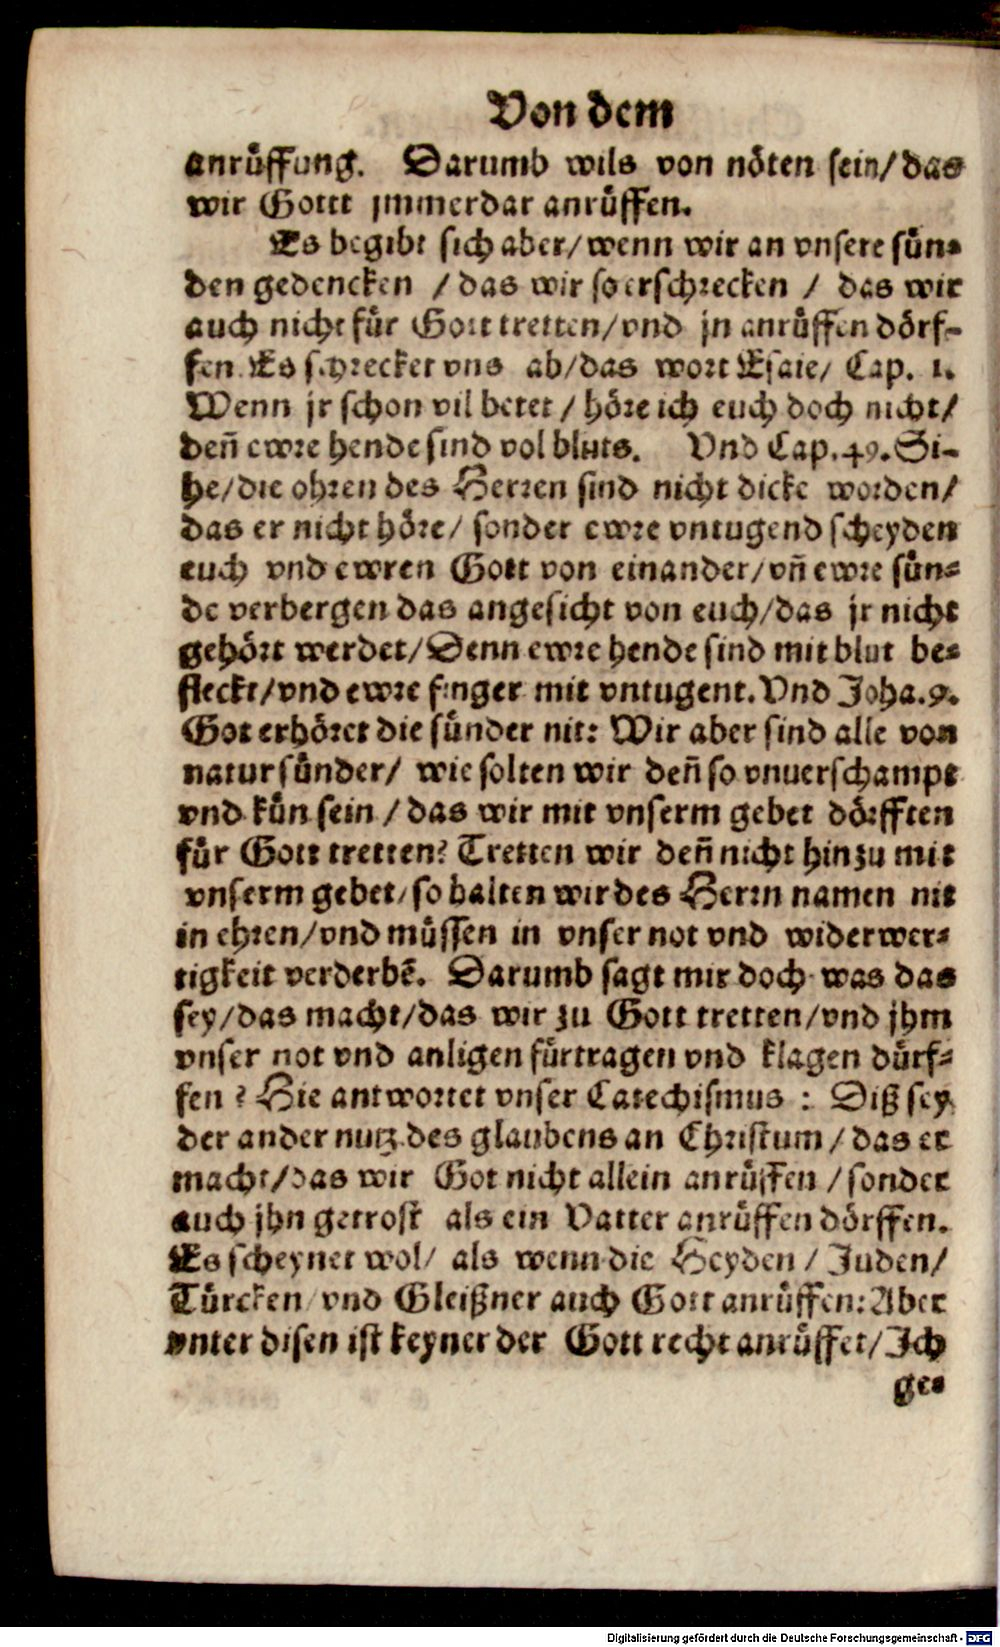 Von dem
anrüffung. Darumb wils von nöten sein/ das
wir Gottt jmmerdar anrüffen.
Es begibt sich aber/ wenn wir an vnsere sün-
den gedencken / das wir so erschrecken / das wir
auch nicht für Gott tretten/ vnd jn anrüffen dörf-
fen. Es schrecket vns ab/ das wort Esaie/ Cap. 1.
Wenn jr schon vil betet / höre ich euch doch nicht/
deñ ewre hende sind vol bluts. Vnd Cap. 49. Si-
he/ die ohren des Herren sind nicht dicke worden/
das er nicht höre/ sonder ewre vntugend scheyden
euch vnd ewren Gott von einander/ vñ ewre sün-
de verbergen das angesicht von euch/ das jr nicht
gehört werdet/ Denn ewre hende sind mit blut be-
fleckt/ vnd ewre finger mit vntugent. Vnd Joha. 9.
Got erhöret die sünder nit: Wir aber sind alle von
natur sünder/ wie solten wir deñ so vnuerschampt
vnd kün sein / das wir mit vnserm gebet dörfften
für Gott tretten? Tretten wir deñ nicht hinzu mit
vnserm gebet/ so halten wir des Herrn namen nit
in ehren/ vnd müssen in vnser not vnd widerwer-
tigkeit verderbē. Darumb sagt mir doch was das
sey/ das macht/ das wir zu Gott tretten/ vnd jhm
vnser not vnd anligen fürtragen vnd klagen dürf-
fen? Hie antwortet vnser Catechismus : Diß sey
der ander nutz des glaubens an Christum / das er
macht/ das wir Got nicht allein anrüffen / sonder
auch jhn getrost als ein Vatter anrüffen dörffen.
Es scheynet wol/ als wenn die Heyden / Juden/
Türcken/ vnd Gleißner auch Gott anrüffen: Aber
vnter disen ist keyner der Gott recht anrüffet/ Ich
ge-
Digitalisierung gefördert durch die Deutsche Forschungsgemeinschaft - DFG